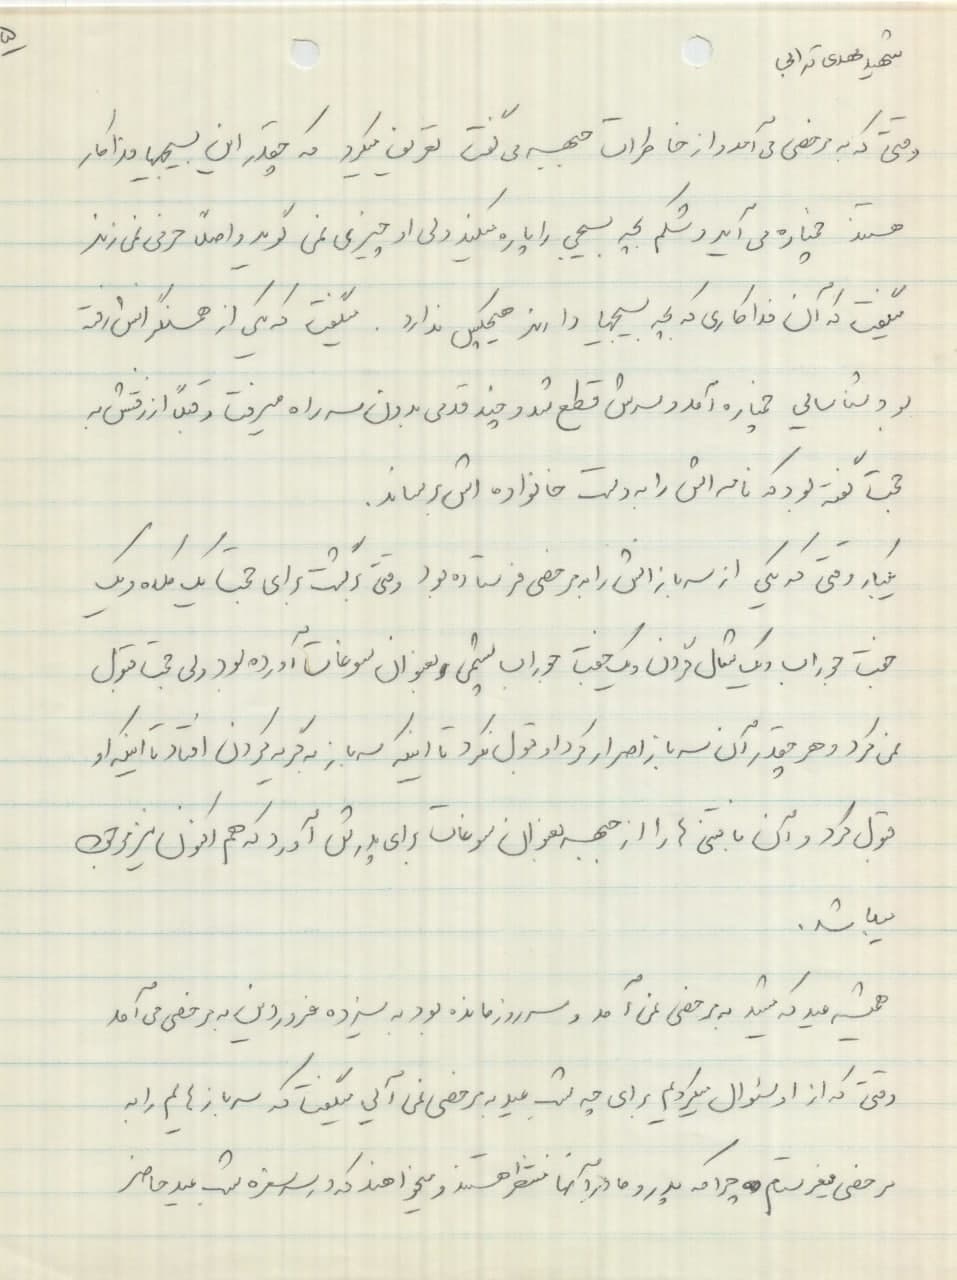 ۵
شهید مهدی ترابی
وقتی که به مرخصی می آمد و از خاطرات جبهه می گفت تعریف میکرد که چقدر این بسیجیها فداکار
هستند خمپاره می آید و شکم بچه بسیجی را پاره میکند ولی او چیزی نمی گوید و اصلاً حرفی نمی زند
میگفت که آن فداکاری که بچه بسیجیها دارند هیچکس ندارد . میگفت که یکی از همسنگرانش رفته
بود شناسایی خمپاره آمد و سرش قطع شد و چند قدمی بدون سر راه میرفت و قبلاً از رفتنش به
حجت گفته بود که نامه اش را به دست خانواده اش برساند .
یکبار وقتی که یکی از سربازانش را به مرخصی فرستاده بود وقتی برگشت برای حجت یک کلاه و یک
جفت جوراب و یک شال گردن و یک جفت جوراب پشمی بعنوان سوغات آورده بود ولی حجت قبول
نمی کرد و هر چقدر آن سرباز اصرار کرد او قبول نکرد تا اینکه سرباز به گریه کردن افتاد تا اینکه او
قبول کرد و آن بافتنی ها را از جبهه بعنوان سوغات برای پدرش آورد که هم اکنون نیز موجود
میباشد .
همیشه عید که میشد به مرخصی نمی آمد و سه روز مانده بود به سیزده فروردین به مرخصی می آمد
وقتی که از او سئوال میکردیم برای چه شب عید به مرخصی نمی آئی میگفت که سربازهایم را به
مرخصی میفرستم چرا که پدر و مادر آنها منتظر هستند و میخواهند که در سر سفره شب عید حاضر